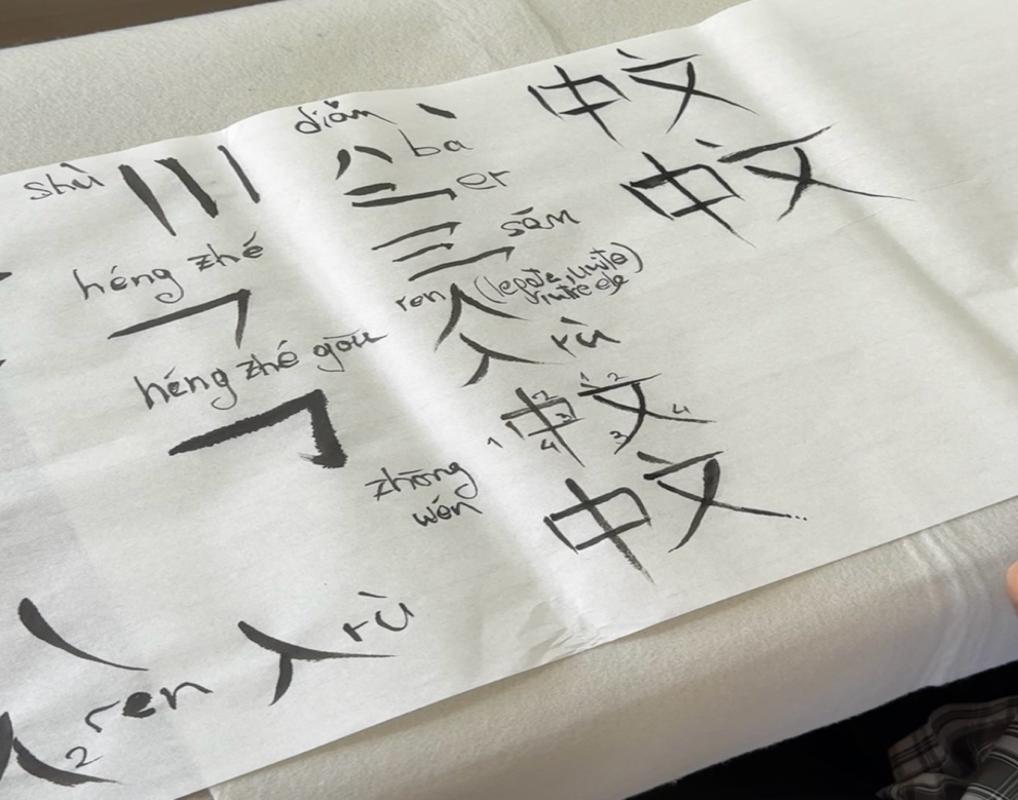 shù
héng zhé
héng zhé gōu
ren
2
入 rù
diǎn 丶
八 ba
二 er
三 sān
ren 人
入 rù
中文
1 2 3 4 1 2 3 4
zhōng
wén
中文
中文
中文